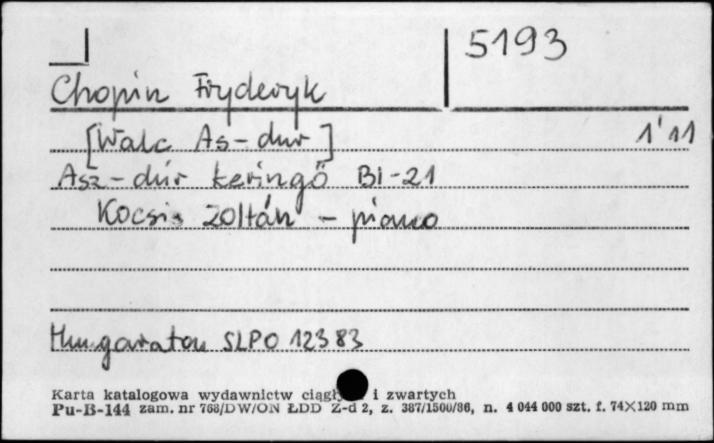 5193
Chopin Fryderyk
[Walc As-dur] 1'11
Asz-dúr keringő BI-21
Kocsis Zoltán - piano
Hungaraton SLPO 12383
Karta katalogowa wydawnictw i zwartych
Pu-B-144 zam. nr 768/DW/ON ŁDD Z-d 2, z. 387/1500/86, n. 4 044 000 szt. f. 74×120 mm